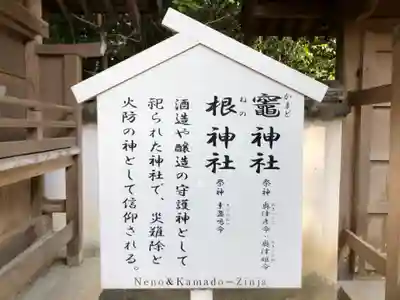 竈神社 祭神 奥津彦命・奥津姫命
かまど
根神社 祭神 素盞嗚命
ねの
酒造や醸造の守護神として
祀られた神社で、災難除と
火防の神として信仰される。
Neno&Kamado-Zinja